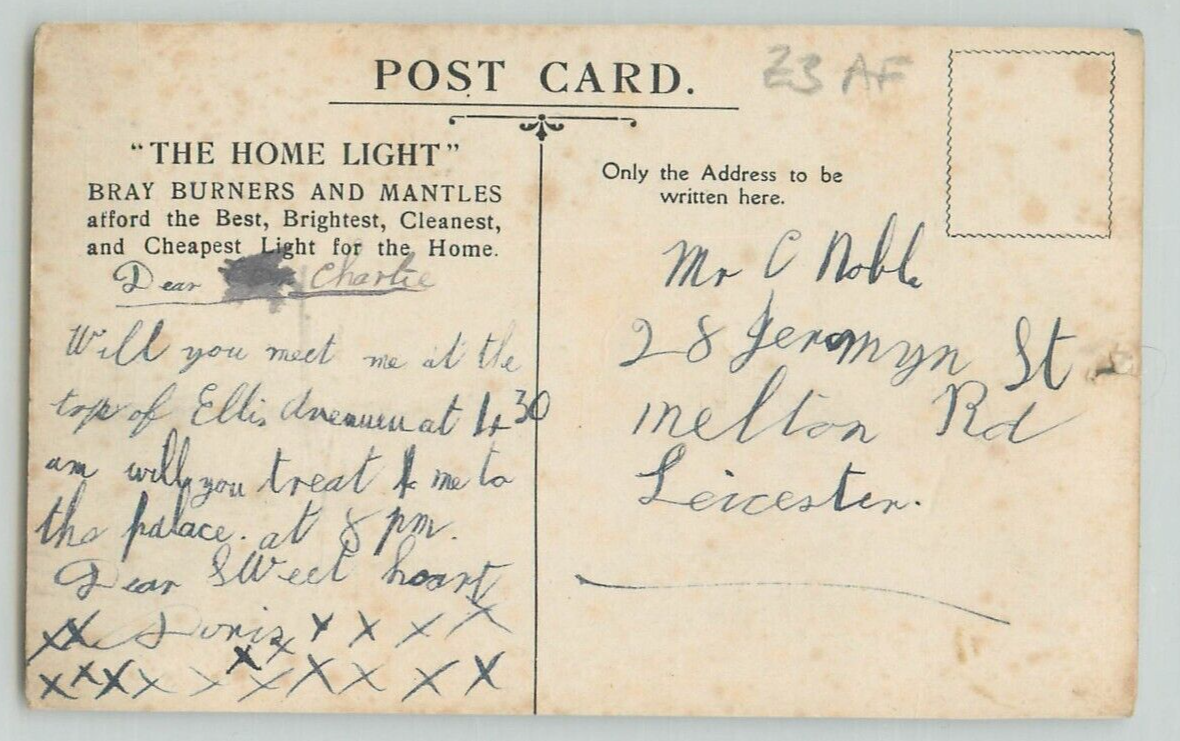 POST CARD.
Z3 AF
"THE HOME LIGHT"
BRAY BURNERS AND MANTLES
afford the Best, Brightest, Cleanest,
and Cheapest Light for the Home.
Dear Charlie
Will you meet me at the
top of Ellis at 4 30
am will you treat me to
the palace. at 8 pm.
Dear SWeet heart
XX Doris X X X X X X
X X X X X X X X X X
Only the Address to be
written here.
Mr C Noble
28 Jeromyn St
melton Rd
Leicester.